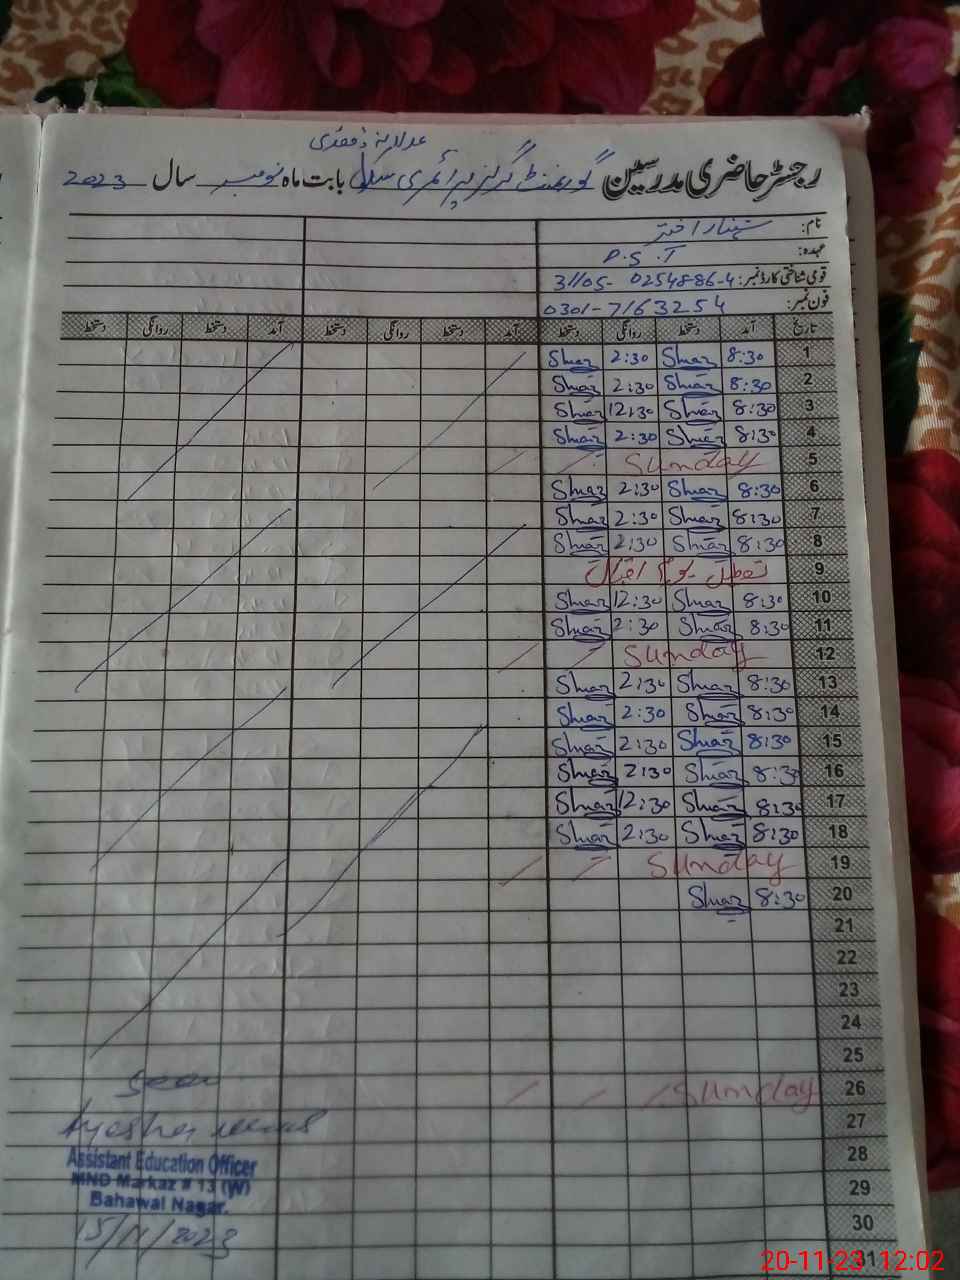 رجسٹر حاضری مدرسین گورنمنٹ گرلز پرائمری سکول بابت ماہ نومبر سال 2023
نام: شہناز اختر
عہدہ: P.S.T
قومی شناختی کارڈ نمبر: 31105-0254886-4
فون نمبر: 0301-7163254
تاریخ آمد دستخط روانگی دستخط آمد دستخط روانگی دستخط آمد دستخط روانگی دستخط
1 8:30 Shaz 2:30 Shaz
2 8:30 Shaz 2:30 Shaz
3 8:30 Shaz 12:30 Shaz
4 8:30 Shaz 2:30 Shaz
5 Sunday
6 8:30 Shaz 2:30 Shaz
7 8:30 Shaz 2:30 Shaz
8 8:30 Shaz 2:30 Shaz
9 تعطیل یوم اقبال
10 8:30 Shaz 12:30 Shaz
11 8:30 Shaz 2:30 Shaz
12 Sunday
13 8:30 Shaz 2:30 Shaz
14 8:30 Shaz 2:30 Shaz
15 8:30 Shaz 2:30 Shaz
16 8:30 Shaz 2:30 Shaz
17 8:30 Shaz 12:30 Shaz
18 8:30 Shaz 2:30 Shaz
19 Sunday
20 8:30 Shaz
21
22
23
24
25
26 Sunday
27
28
29
30
31
Seen
Ayesha
Assistant Education Officer
MND Markaz # 13 (W)
Bahawal Nagar.
15/11/2023
20-11-23 12:02